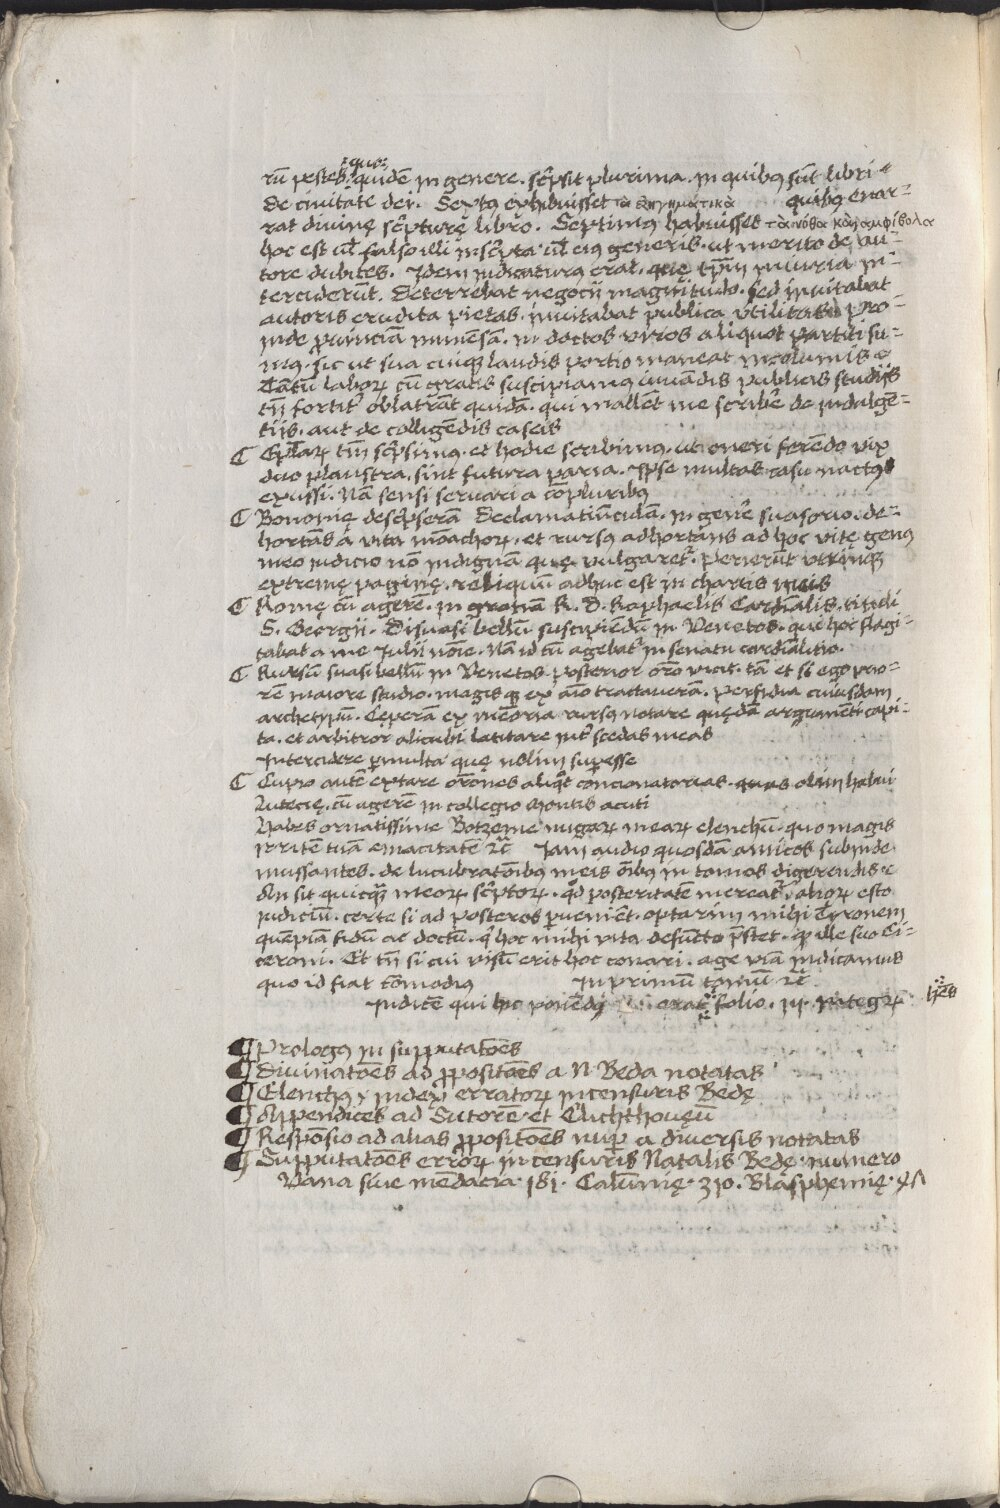 quo:
rū pestes. quidē in genere. scp̄sit plurima. in quibꝯ sūt libri
de ciuitate dei. Sextꝯ exhibuisset τα ἐξηγηματικὰ quibꝯ enar-
rat diuinę scp̄turę libro. Septimus habuisset τὰ νόθα καὶ ἀμφίβολα
hoc est ul̄ falso illi inscp̄ta ul̄ eius generis. ut merito de au-
tore dubites. Idem indicaturus erat. quę tp̄m̄ iniuria in-
terciderūt. Deterrebat negocij magnitudo. sed inuitabat
autoris erudita pietas. inuitabat publica vtilitas. pro-
inde prouinciā immēsā. in doctos viros aliquot partiti su-
mꝯ. sic ut sua cuiqꝫ laudis portio maneat incolumis
Tātū laboꝝ cū gratis suscipiamꝯ iuuādis publicis studijs
tn̄ fortit' oblatrāt quidā. qui mallēt me scribe' de indulgē-
tijs. aut de colligēdis caseis
Epl̄aꝝ tm̄ scp̄simꝯ. et hodie scribimꝯ. ut oneri ferēdo vix
duo plaustra. sint futura paria. Ipse multas casu nactus
exussi. Nā sensi seruari a cōpluribꝯ
Bononię descp̄serā Declamatiūculā. in gene' suasorio. de-
hortās a vita monachoꝝ. et rursꝯ adhortans ad hoc vitę genꝯ
meo iudicio nō indignā quę vulgaret'. Perierūt vtrinqꝫ
extremę paginę. reliquū adhuc est in chartis meis
Romę cū agerē. in gratiā R. D. Raphaelis Cardinalis. tituli
S. Georgij. Disuasi bellū suscipiēdū in Venetos. qui hoc flagi-
tabat a me Iulij noīe. Nā id tū agebat' in senatu cardinalitio.
Rursū suasi bellū in Venetos. posterior oro vicit. tā et si ego prio-
rē maiore studio. magis qꝫ ex aīo tractauerā. Perfidia cuiusdam
archetypū. Ceperā ex memoria rursꝯ notare quędā argumēti capi-
ta. et arbitror alicubi latitare int' scedas meas
Intercidere permulta quę nolim superesse
Cupio autē extare orōnes aliqt̄ concionatorias. quas olim habui
Lutecię. cū agerē in collegio Montis acuti
Habes ornatissime Botzeme nugaꝝ meaꝝ elenchū. quo magis
irritē tuā emacitatē ⁊c̄ Iam audio quosdā amicos subinde
mussantes. de lucubratōibus meis oībꝯ in tomos digerendis.
An sit quicqꝫ meoꝝ scp̄toꝝ. qd̄ posteritatē mereat' alioꝝ esto
iudiciū. certe si ad posteros pueniēt. optarim mihi Tyronem
quēpiā fidū ac doctū. q̄ hoc mihi vita defūcto p̄stet. qd̄ ille suo Ci-
ceroni. Et tn̄ si cui visū erit hoc conari. age viā indicamus
quo id fiat cōmodiꝯ In primū tomū ⁊c̄
Indicē qui hic ponēdꝯ erat folio. iij. integꝝ
Prologꝯ in supputatōes
Diuinatōes ad ꝓpositōes a N. Beda notatas
Elenchꝯ & index erratoꝝ in censuris Bedę
Appendices ad Sutorē. et Clichthouęū
Responsio ad alias ꝓpositōes nup a diuersis notatas
Supputatōes erroꝝ in censuris Natalis Bedę. numero
Vana siue mēdacia. 181. Calūnię. 310. Blasphemię. 47